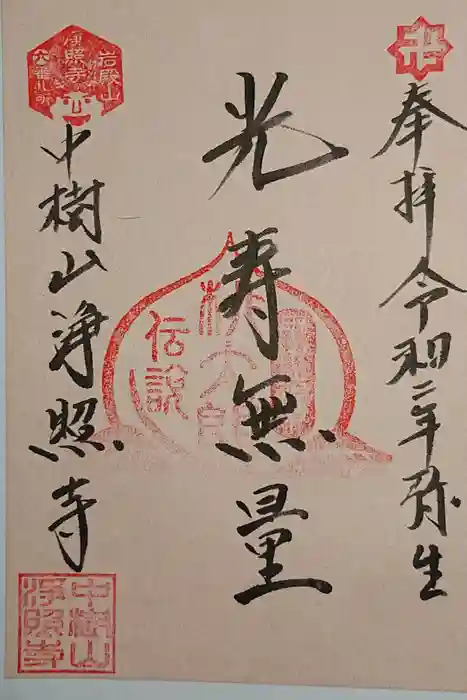 奉拝 令和二年弥生
光寿無量
桃太郎
伝説
中樹山浄照寺
岩殿山
浄照寺
中樹山
浄照寺